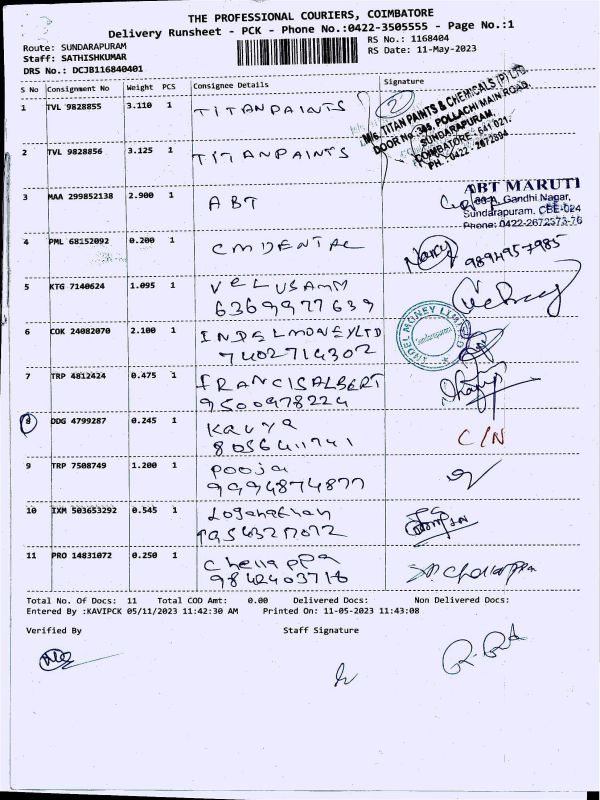 THE PROFESSIONAL COURIERS, COIMBATORE
Delivery Runsheet - PCK - Phone No.:0422-3505555 - Page No.:1
Route: SUNDARAPURAM RS No.: 1168404
Staff: SATHISHKUMAR RS Date: 11-May-2023
DRS No.: DCJB116840401
S No Consignment No Weight PCS Consignee Details Signature
1 TVL 9828855 3.110 1 TITANPAINTS 2
M/s. TITAN PAINTS & CHEMICALS (P) LTD.
DOOR No: 345, POLLACHI MAIN ROAD,
SUNDARAPURAM,
COIMBATORE - 641 021.
PH: 0422 - 2672694
2 TVL 9828856 3.125 1 TITANPAINTS
3 MAA 299852138 2.900 1 ABT
ABT MARUTI
Gandhi Nagar,
Sundarapuram, CBE-024
Phone: 0422-2672573-76
4 PML 68152092 0.200 1 CMDENTAL Nancy 9894957985
5 KTG 7140624 1.095 1 VELUSAMM
6369977639
6 COK 24082070 2.100 1 INDELMONEYLTD
7402714302
INDEL MONEY LIMITED
Sundarapuram
7 TRP 4812424 0.475 1 FRANCISALBERT
9500978224
8 DDG 4799287 0.245 1 Kavya C/N
8056411741
9 TRP 7508749 1.200 1 Pooja
9994874877
10 IXM 503653292 0.545 1 Loganathan
9 PRO 14831072 0.250 1 Chellappa
9842403716
Total No. Of Docs: 11 Total COD Amt: 0.00 Delivered Docs: Non Delivered Docs:
Entered By :KAVIPCK 05/11/2023 11:42:30 AM Printed On: 11-05-2023 11:43:08
Verified By Staff Signature